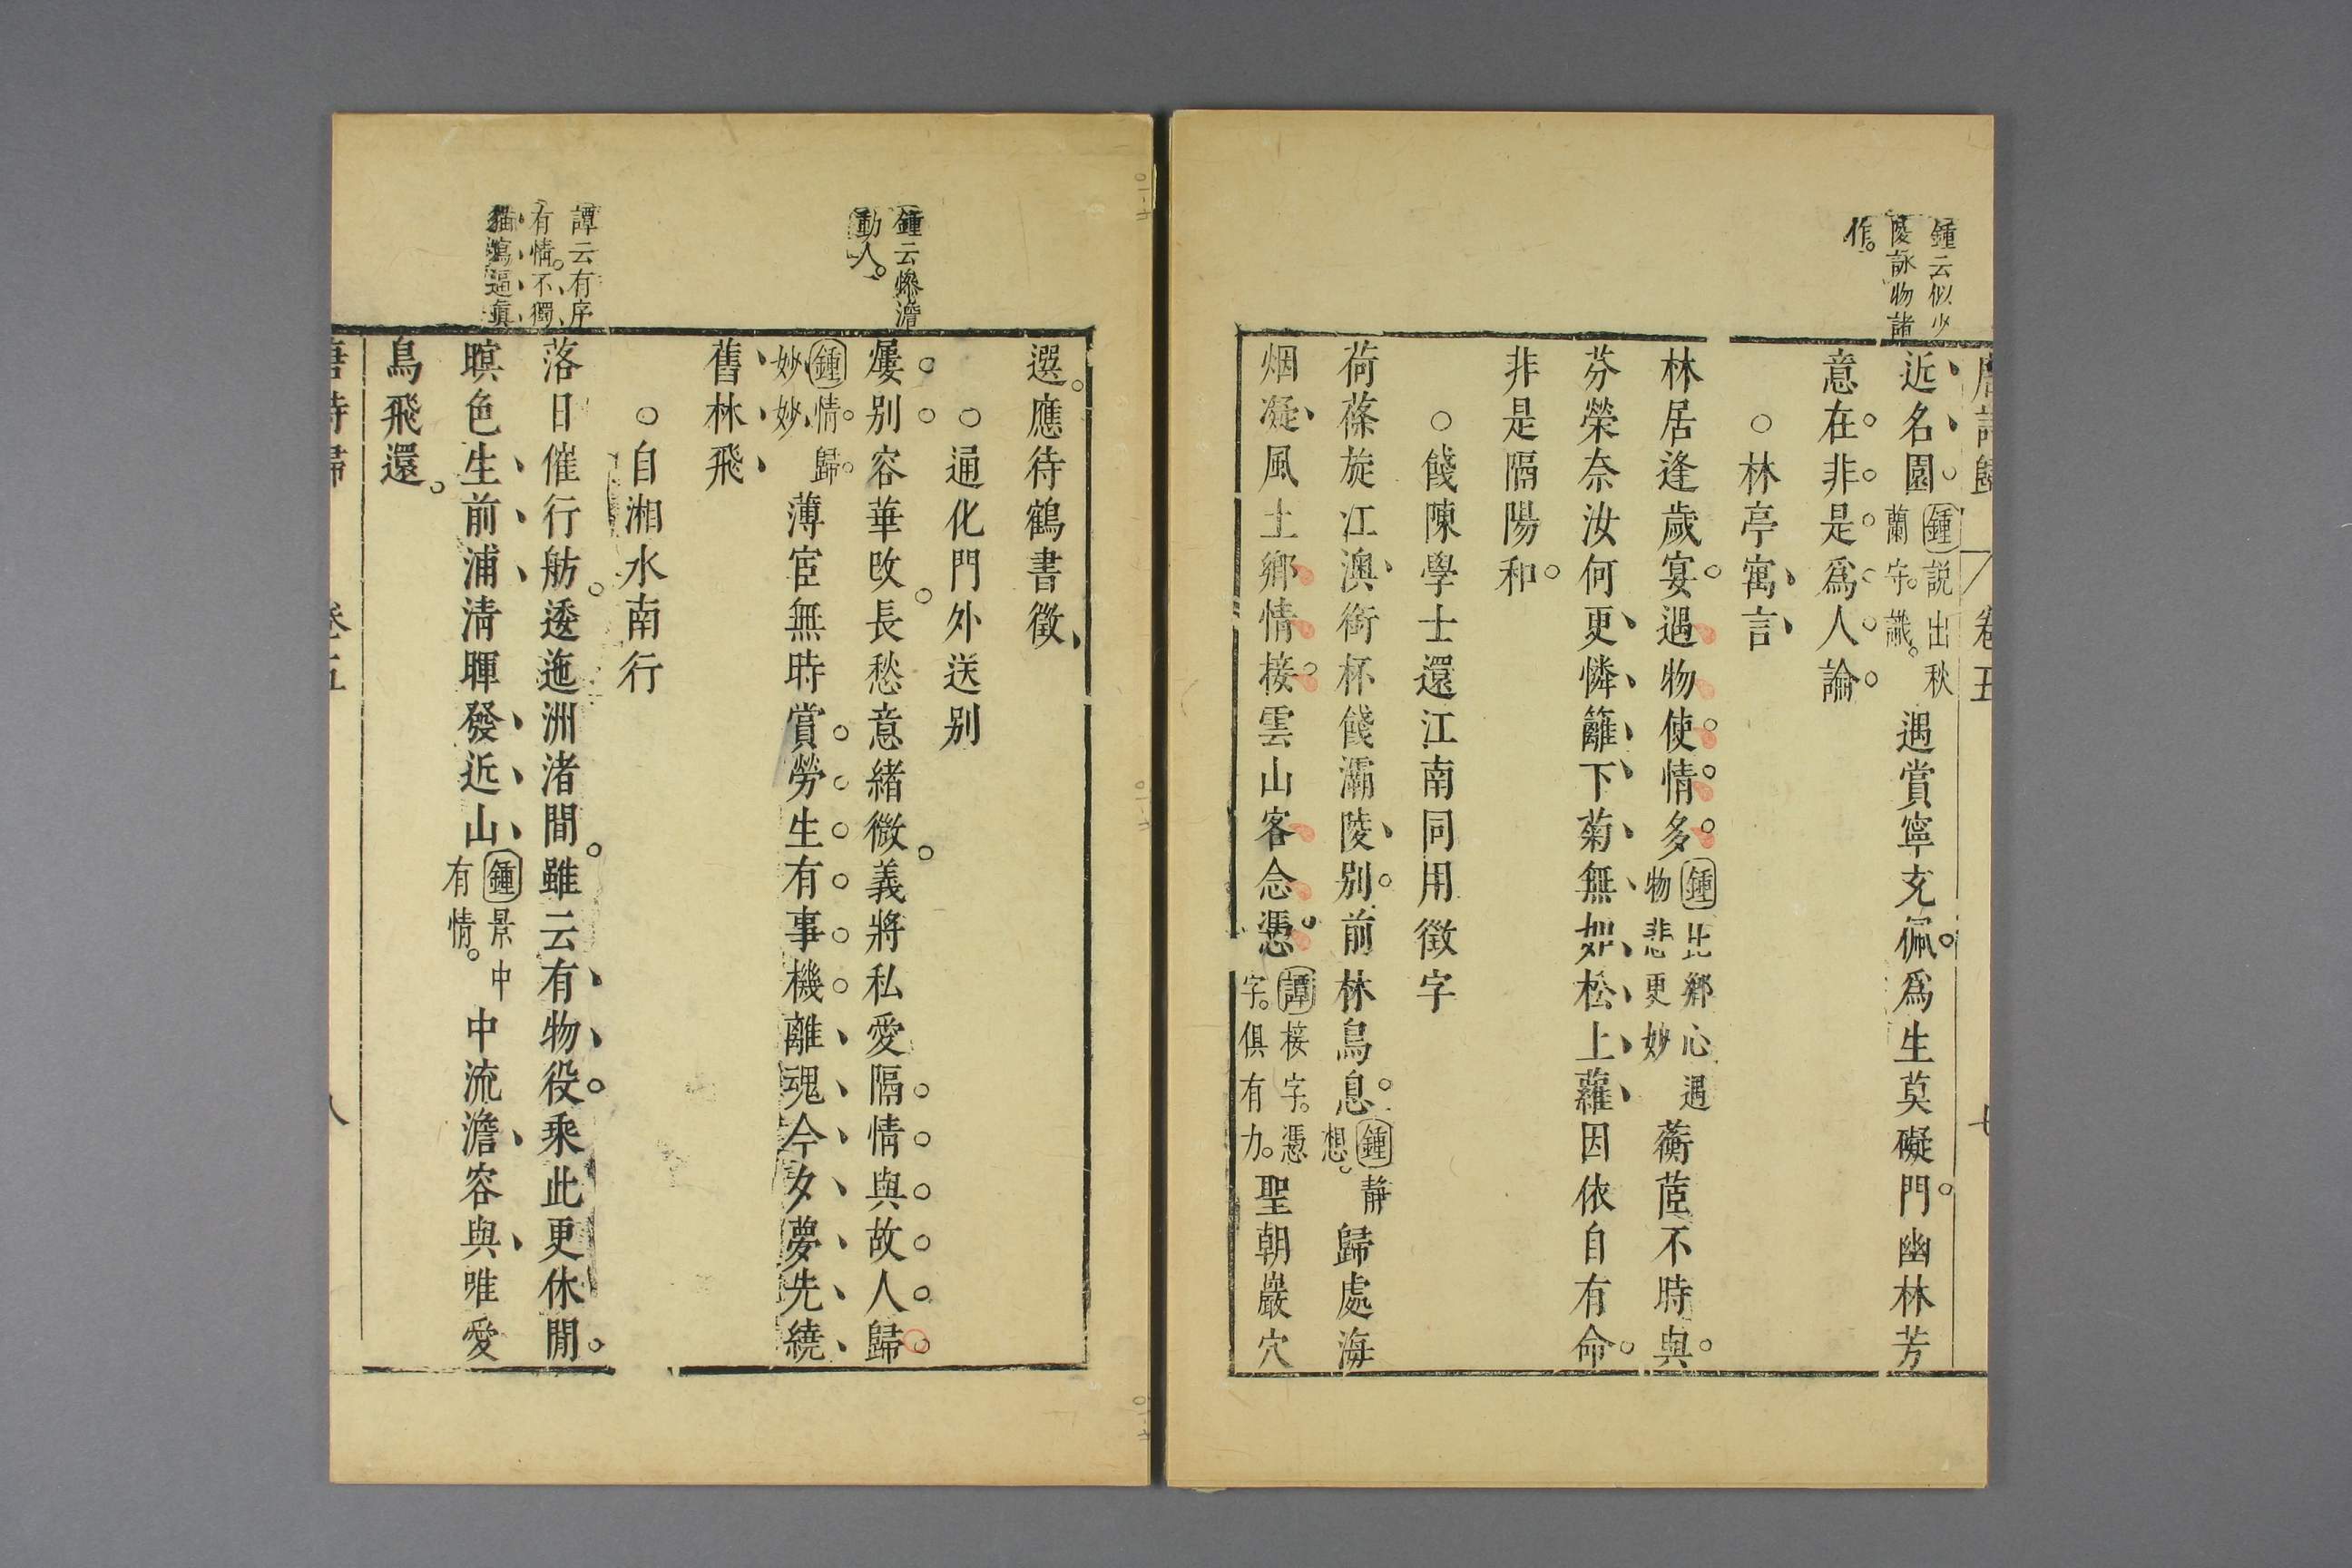 鍾云似少
陵詠物諸
作。
唐詩歸 卷五 七
近名園鍾説出秋蘭守。讖。遇賞寧充佩。爲生莫礙門。幽林芳
意在。非是爲人論。
○林亭寓言
林居逢歲宴。遇物使情多。鍾比鄉心遇物悲更妙蘅茝不時與。
芬榮奈汝何。更憐籬下菊。無如松上蘿。因依自有命。
非是隔陽和。
○餞陳學士還江南同用徵字
荷蓧旋江澳、銜杯餞灞陵、別。前林鳥息。鍾靜想。歸處海
烟凝、風土鄉情接。雲山客念憑。譚接字。憑字。俱有力。聖朝巖穴
鍾云慘澹
動人。
譚云有序
有情。不獨
描寫逼眞
選。應待鶴書徵、
○通化門外送別
屢別容華改。長愁意緒微。義將私愛隔。情與故人歸。
鍾情歸。妙妙薄宦無時賞。勞生有事機。離魂今夕夢、先繞
舊林飛、
○自湘水南行
落日催行舫。逶迤洲渚間。雖云有物役。乘此更休閒。
暝色生前浦、清暉發近山、鍾景中有情。中流澹容與、唯愛
鳥飛還。
唐詩歸 卷五 八